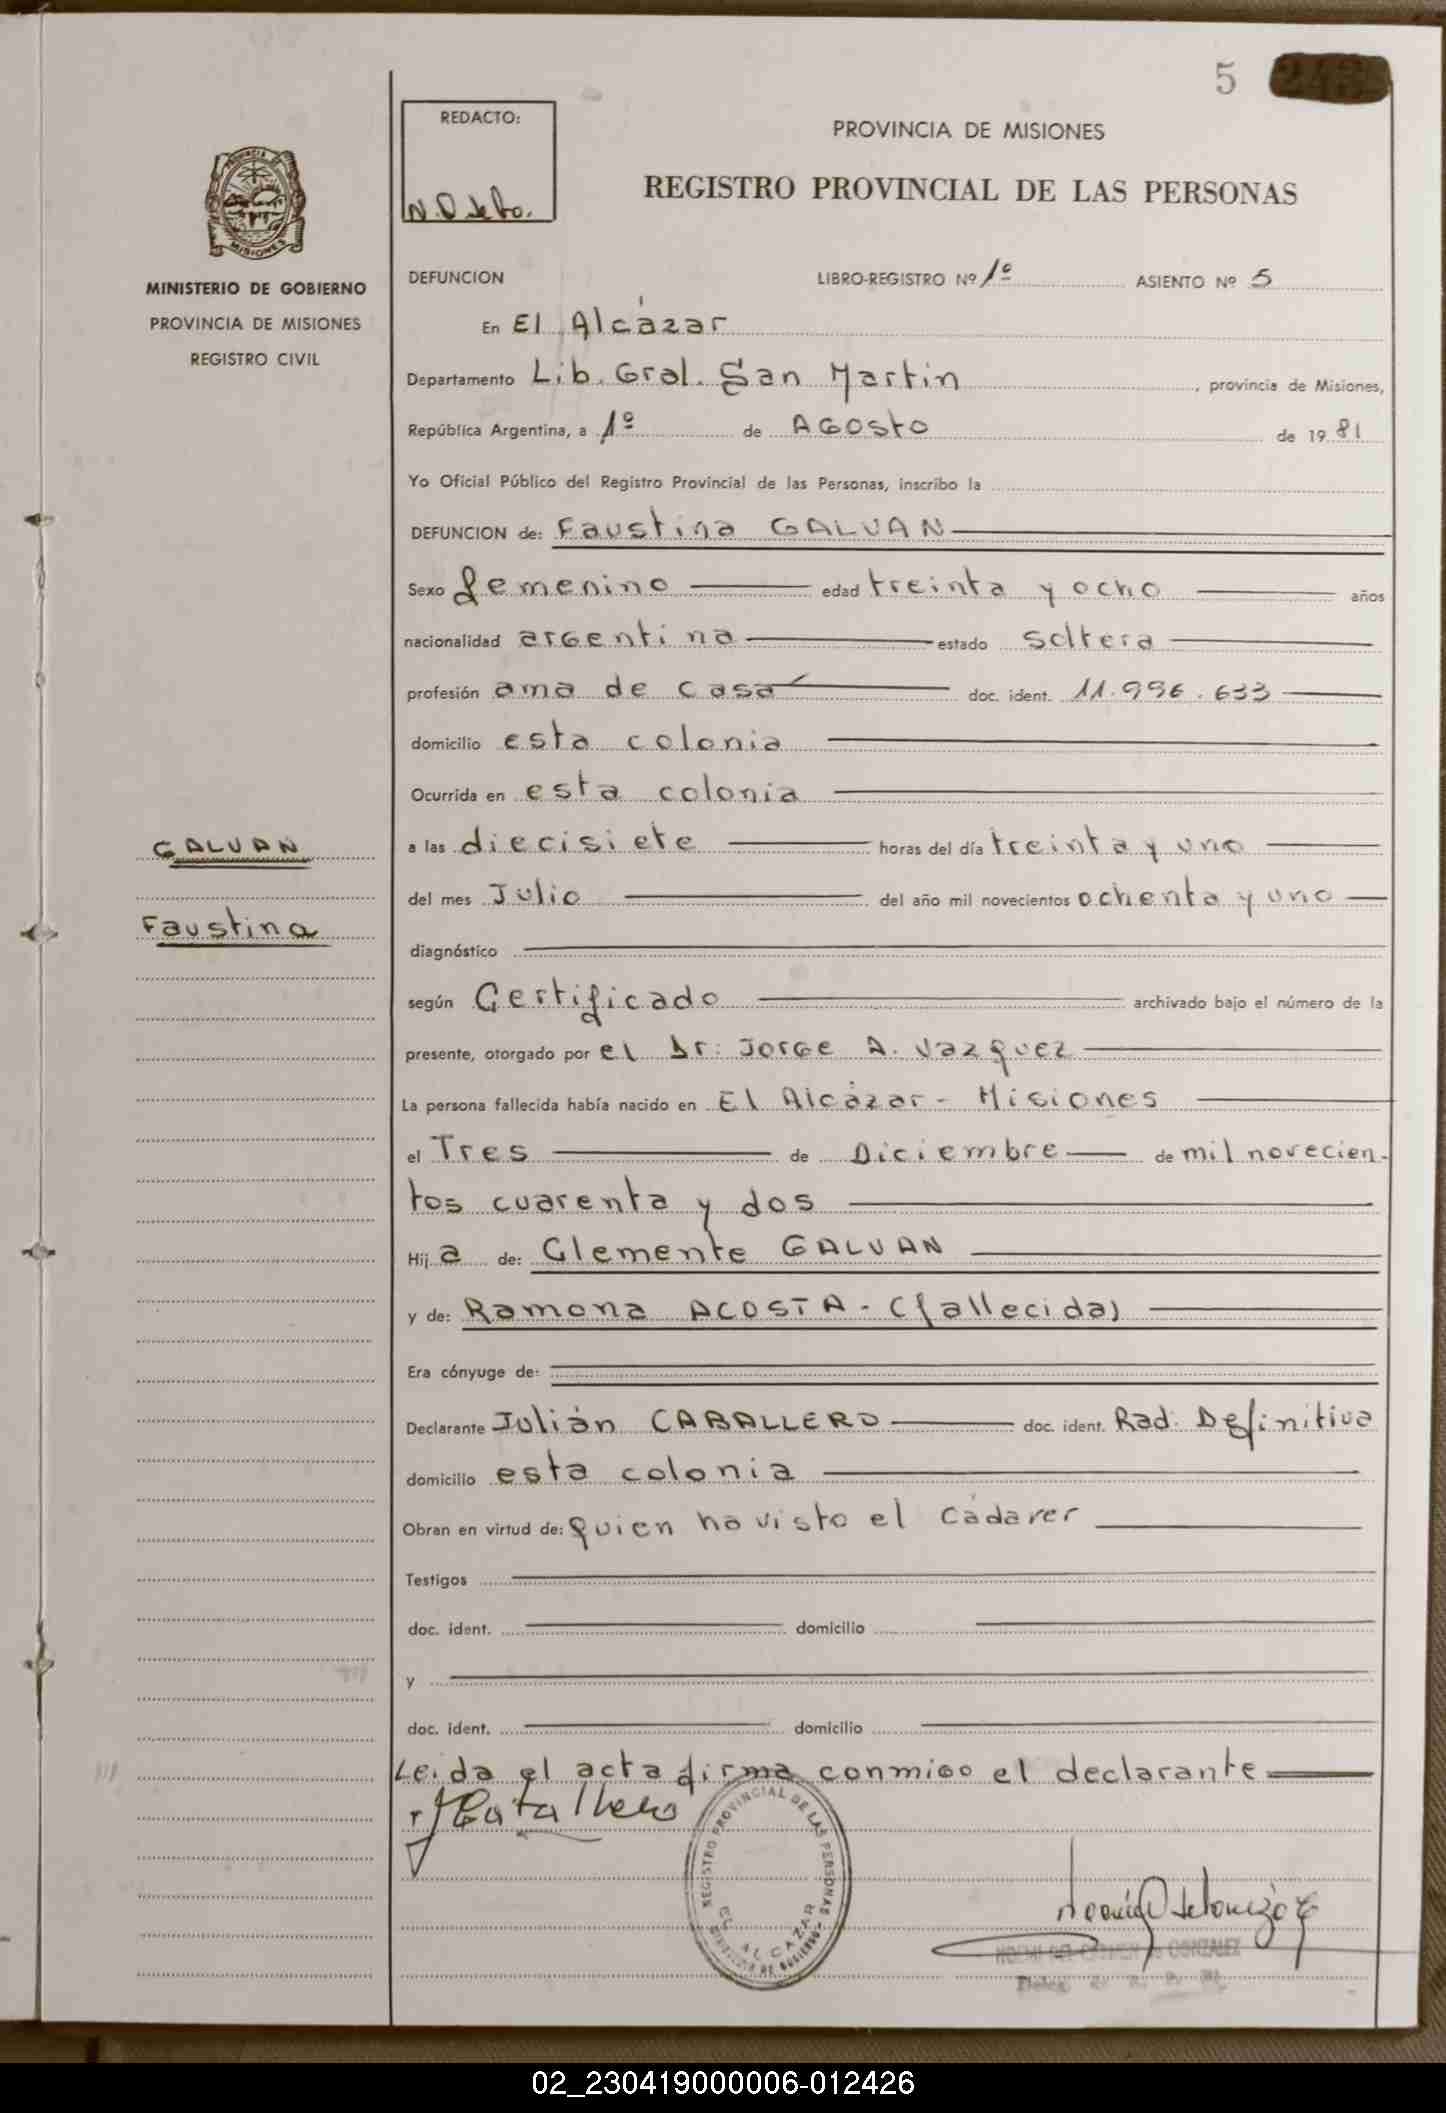 5
REDACTO:
PROVINCIA DE MISIONES
REGISTRO PROVINCIAL DE LAS PERSONAS
MISIONES
MINISTERIO DE GOBIERNO
PROVINCIA DE MISIONES
REGISTRO CIVIL
DEFUNCION LIBRO-REGISTRO Nº 1º ASIENTO Nº 5
En El Alcázar
Departamento Lib. Gral. San Martin, provincia de Misiones,
República Argentina, a 1º de AGOSTO de 1981
Yo Oficial Público del Registro Provincial de las Personas, inscribo la
DEFUNCION de: Faustina GALVAN
Sexo femenino edad treinta y ocho años
nacionalidad argentina estado soltera
profesión ama de casa doc. ident. 11.996.633
domicilio esta colonia
Ocurrida en esta colonia
GALVAN
a las diecisiete horas del día treinta y uno
del mes Julio del año mil novecientos ochenta y uno
Faustina
diagnóstico
según Certificado archivado bajo el número de la
presente, otorgado por el Dr. Jorge A. Vazquez
La persona fallecida había nacido en El Alcázar - Misiones
el Tres de Diciembre de mil novecien-
tos cuarenta y dos
Hija de: Clemente GALVAN
y de: Ramona ACOSTA - (fallecida)
Era cónyuge de:
Declarante Julián CABALLERO doc. ident. Rad. Definitiva
domicilio esta colonia
Obran en virtud de: quien ha visto el cádaver
Testigos
doc. ident. domicilio
y
doc. ident. domicilio
Leida el acta firma conmigo el declarante
REGISTRO PROVINCIAL DE LAS PERSONAS
EL ALCAZAR
02_230419000006-012426